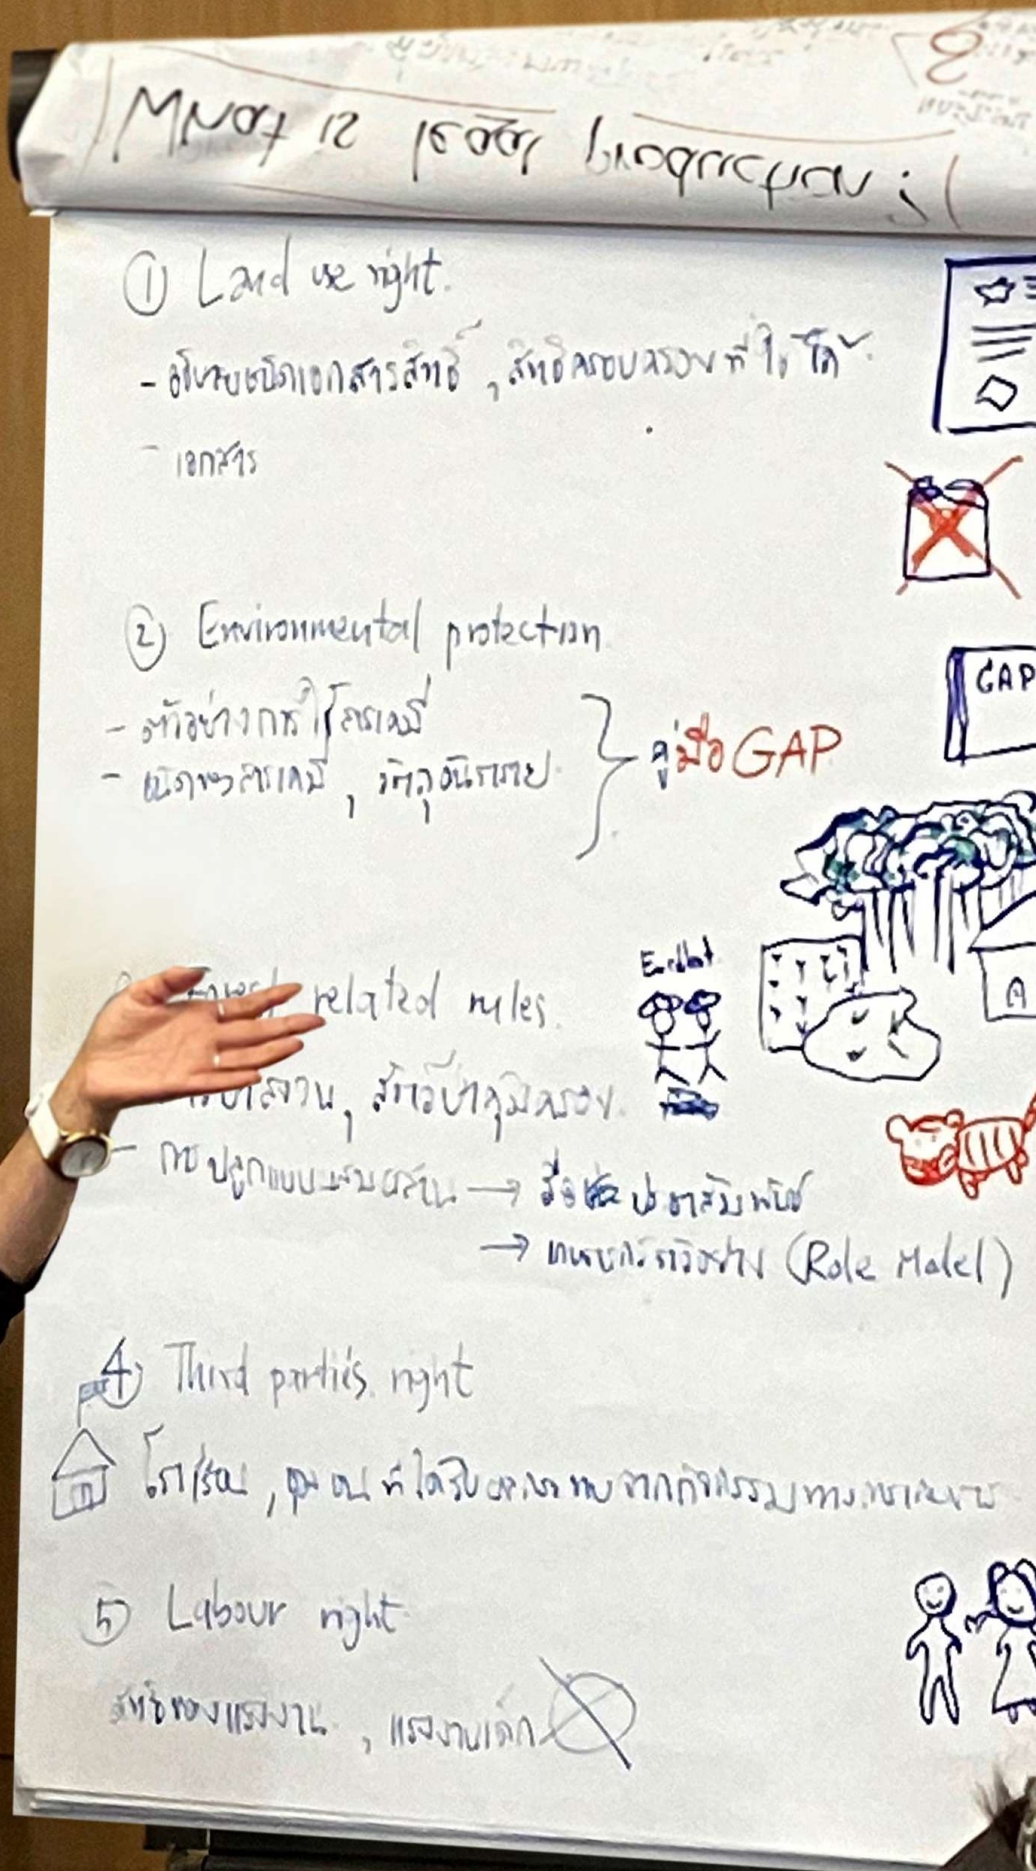 What is legal production?
① Land use right.
- อธิบายชนิดเอกสารสิทธิ์, สิทธิครอบครองที่ใช้ได้
- เอกสาร
② Environmental protection
- ตัวอย่างการใช้สารเคมี
- ชนิดของสารเคมี, วัตถุอันตราย
คู่มือ GAP
GAP
related rules.
สัตว์ป่าคุ้มครอง
- การปลูกแบบผสมผสาน → สื่อ ประชาสัมพันธ์
→ เกษตรกรตัวอย่าง (Role Model)
④ Third parties right
โรงเรียน, ชุมชนที่ได้รับผลกระทบจากกิจกรรมทางการเกษตร
⑤ Labour right
สิทธิของแรงงาน, แรงงานเด็ก